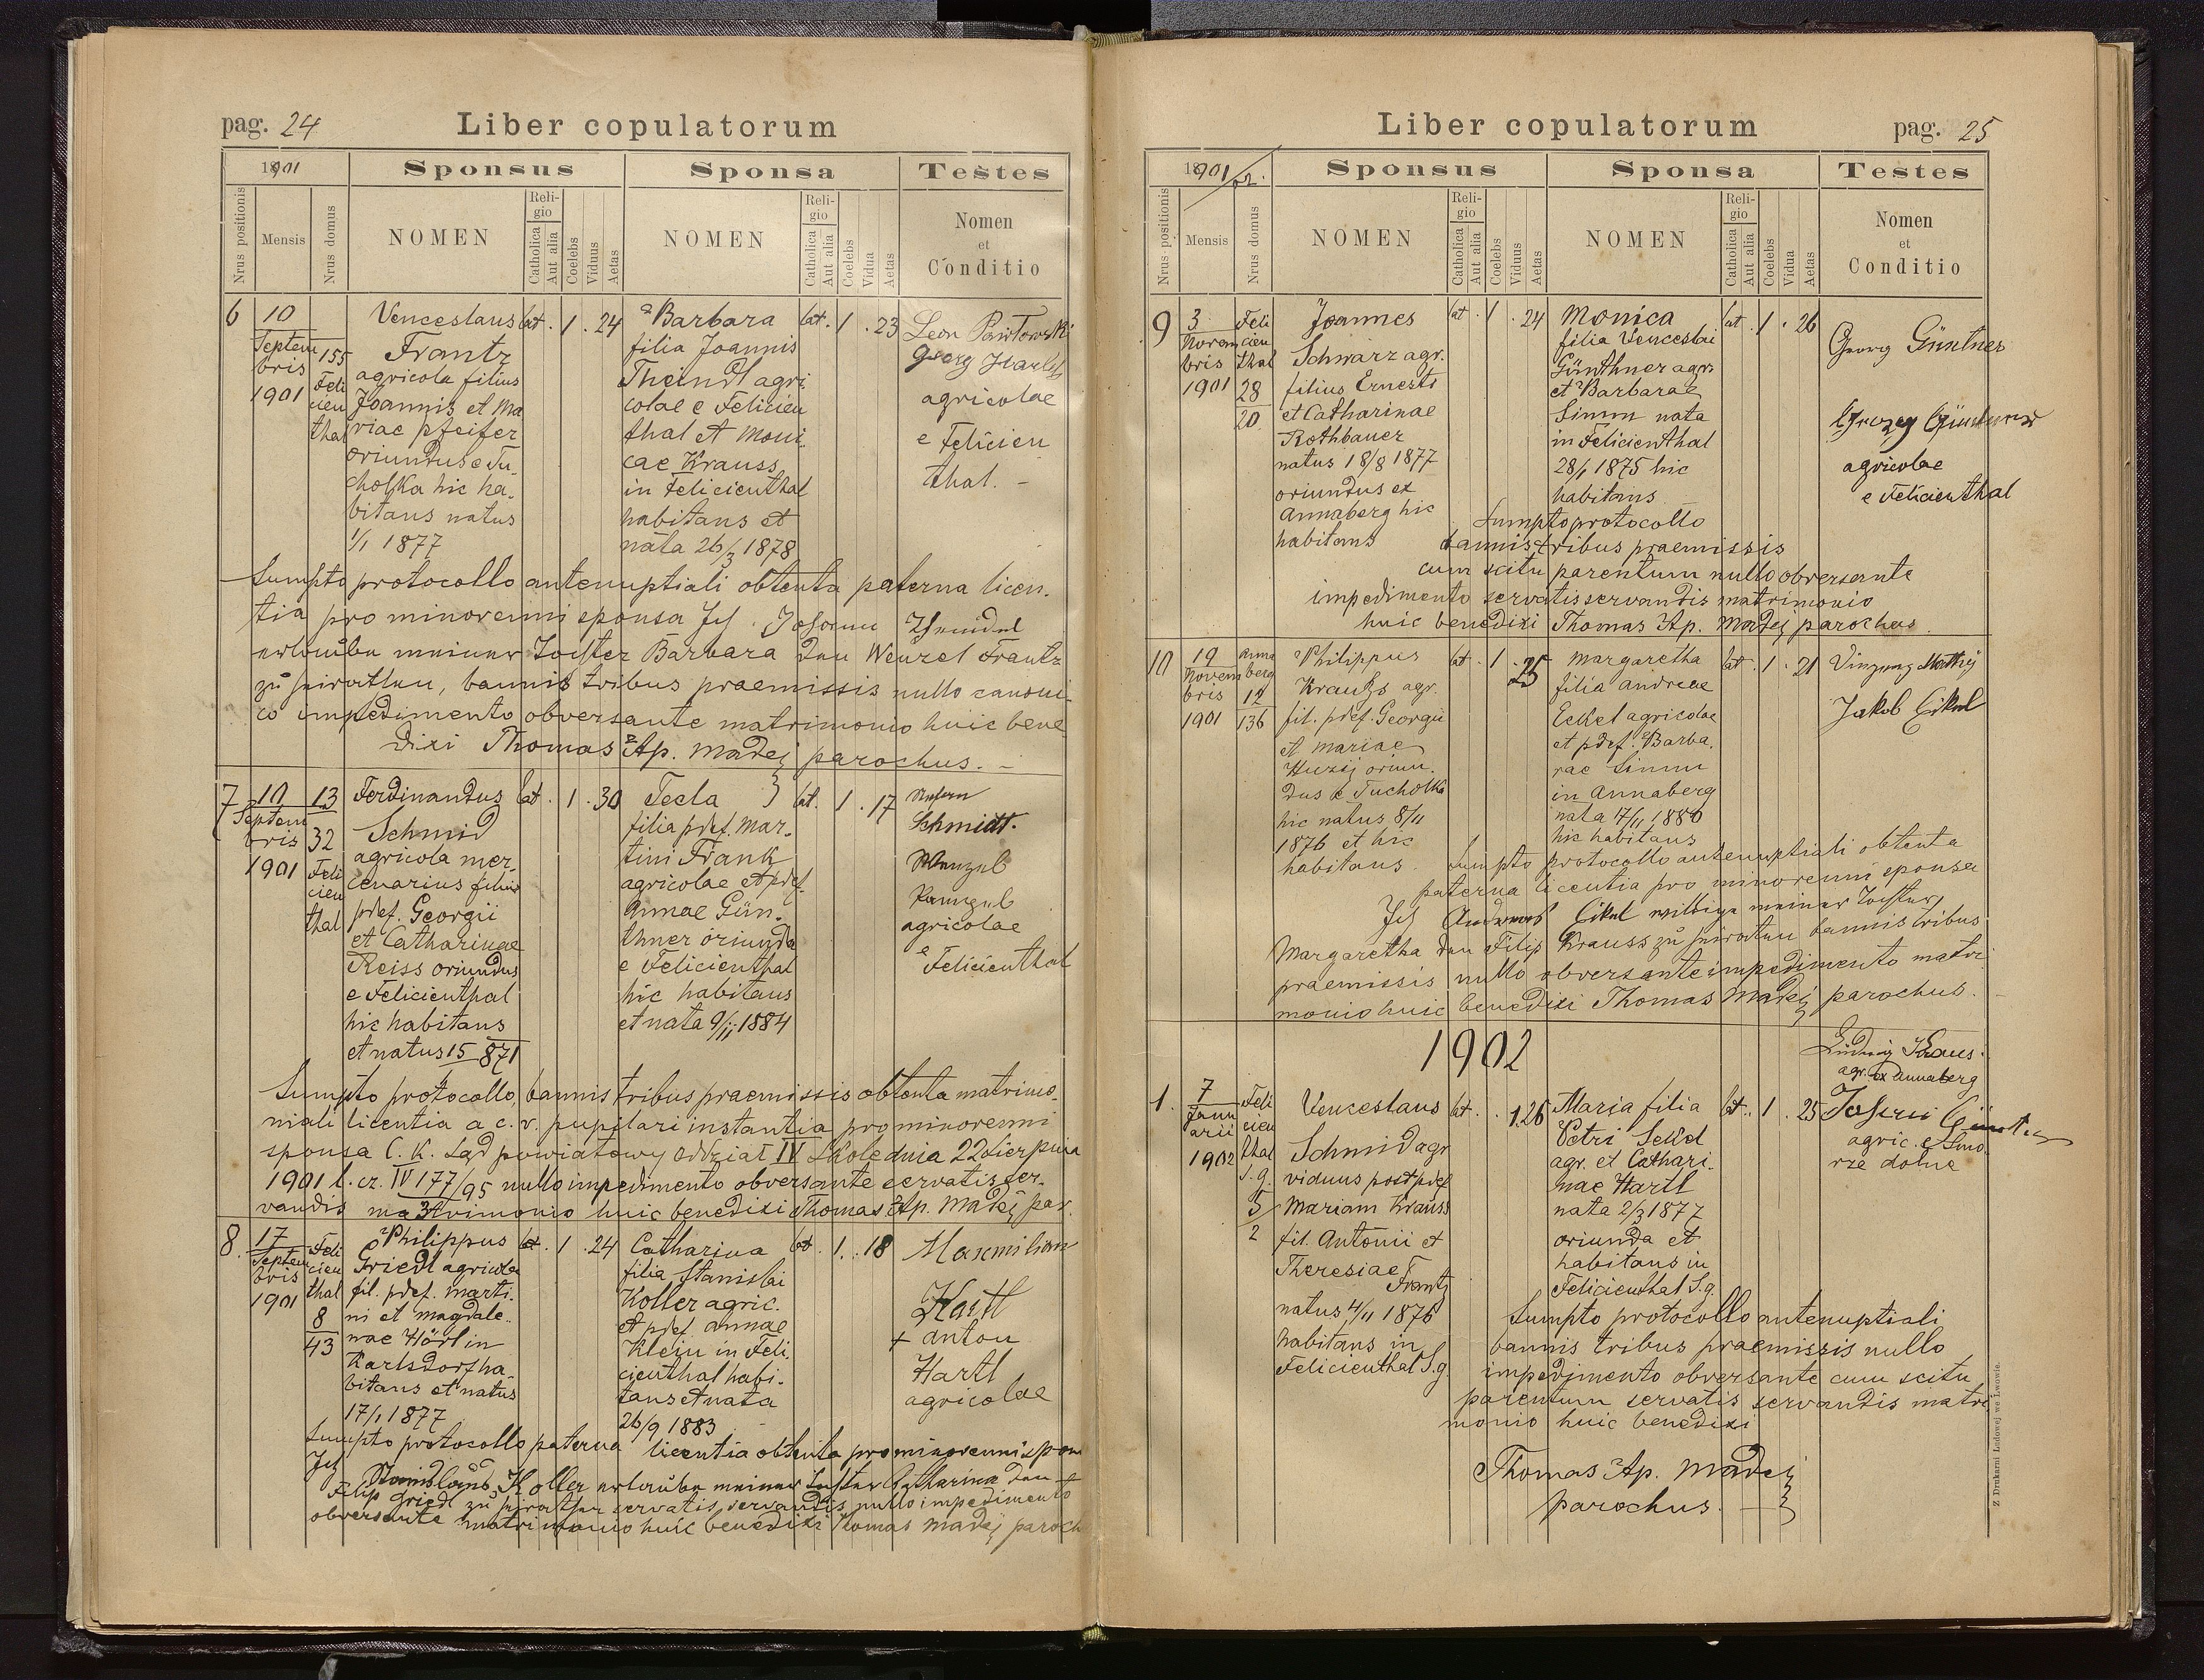 pag. 24
Liber copulatorum
1901
Sponsus
Sponsa
Testes
Nrus positionis
Mensis
Nrus domus
NOMEN
Religio
Catholica
Aut alia
Coelebs
Viduus
Aetas
NOMEN
Religio
Catholica
Aut alia
Coelebs
Vidua
Aetas
Nomen
et
Conditio
6
10
Septem
bris
1901
155
Feli
cien
thal
Venceslaus
Frantz
agricola filius
Joannis et Ma
riae Pfeifer
oriundus e Tu-
cholka hic ha-
bitans natus
1/1 1877
cat. 1 . 24
Barbara
filia Joannis
Theindl agri
colae e Felicien
thal et Moni-
cae Krauss
in Felicienthal
habitans et
nata 26/3 1878
cat. 1 . 23
Leon
Georg Hartl
agricolae
e Felicien
thal. -
Sumpto protocollo antenuptiali obtenta paterna licen-
tia pro minorenni sponsa Ich Johann
erlaube meiner Tochter Barbara den Wenzel Frantz
zu heirathen, bannis tribus praemissis nullo canoni-
co impedimento obversante matrimonio huic bene
dixi Thomas Ap. Madej parochus. -
7
10
Septem
bris
1901
13
32
Feli
cien
thal
Ferdinandus
Schmid
agricola mer-
cenarius filius
pdef. Georgii
et Catharinae
Reiss oriundus
e Felicienthal
hic habitans
et natus 15 871
cat. 1 . 30
Tecla
filia pdef. Mar-
tini Frank
agricolae et pdef.
Annae Gün-
thner oriunda
e Felicienthal
hic habitans
et nata 9/ii 1884
cat. 1 . 17
Schmidt.
agricolae
e
Felicienthal
Sumpto protocollo, bannis tribus praemissis obtenta matrimo-
niali licentia a c. r. pupilari instantia pro minorenni
sponsa C. K. Sąd powiatowy oddział IV Skole dnia 22 Sierpnia
1901 l. cz. IV 177/95 nullo impedimento obversante servatis ser-
vandis matrimonio huic benedixi Thomas Ap. Madej par.
8.
17
Septem
bris
1901
Feli
cien
thal
8
43
Philippus
Griedl agricola
fil. pdef. Marti-
ni et Magdale-
nae Hörl in
Karlsdorf ha-
bitans et natus
17/1 1877
cat. 1 . 24
Catharina
filia Stanislai
Koller agric.
et pdef Annae
Klein in Feli-
cienthal habi-
tans et nata
26/9 1883
cat. 1. . 18
Maxmilian
Hartl
+ Anton
Hartl
agricolae
Sumpto protocollo paterna licentia obtenta pro minorenni spon
Ich
Stanislaus Koller erlaube meiner Tochter Catharina den
Filip Griedl zu heirathen servatis servandis nullo impedimento
obversante matrimonio huic benedixi Thomas Madej paroch
Liber copulatorum
pag. 25
1901/02.
Sponsus
Sponsa
Testes
Nrus positionis
Mensis
Nrus domus
NOMEN
Religio
Catholica
Aut alia
Coelebs
Viduus
Aetas
NOMEN
Religio
Catholica
Aut alia
Coelebs
Vidua
Aetas
Nomen
et
Conditio
9
3
Novem
bris
1901
Feli
cien
thal
28
20
Joannes
Schwarz agr.
filius Ernesti
et Catharinae
Rothbauer
natus 18/8 1877
oriundus ex
Annaberg hic
habitans
cat . 1 . 24
Monica
filia Venceslai
Günthner agr.
et Barbarae
Simm nata
in Felicienthal
28/1 1875 hic
habitans
cat . 1 . 26
Georg Güntner
agricolae
e Felicienthal
Sumpto protocollo
bannis tribus praemissis
cum scitu parentum nullo obversante
impedimento servatis servandis matrimonio
huic benedixi Thomas Ap. Madej parochus.
10
19
Novem
bris
1901
Anna
berg
12
136
Philippus
Krauss agr.
fil. pdef. Georgii
et Mariae
oriun-
dus e Tucholka
hic natus 8/11
1876 et hic
habitans
cat . 1 . 25
Margaretha
filia Andreae
Eckel agricolae
et pdef. Barba-
rae Simm
in Annaberg
nata 17/1 1880
hic habitans
cat . 1 . 21
Jakob Eikel
Sumpto protocollo antenuptiali obtenta
paterna licentia pro minorenni sponsa
Ich Andreas Eikel willige meiner Tochter
Margaretha den Filip Krauss zu heiraten bannis tribus
praemissis nullo obversante impedimento matri-
monio huic benedixi Thomas Madej parochus.
1902
1.
7
Janu
arii
1902
Feli
cien
thal
S.g.
5
2
Venceslaus
Schmid agr
viduus post pdef
Mariam Krauss
fil. Antonii et
Theresiae
Frantz
natus 4/11 1876
habitans in
Felicienthal S.g.
cat . . 1.26
Maria filia
Petri Seidl
agr. et Cathari-
nae Hartl
nata 2/3 1877
oriunda et
habitans in
Felicienthal S.g.
cat . 1 . 25
Ludwig Kraus.
agr. ex Annaberg
agric. e Smo-
rze dolne
Sumpto protocollo antenuptiali
bannis tribus praemissis nullo
impedimento obversante cum scitu
parentum servatis servandis matri
monio huic benedixi
Thomas Ap. Madej
parochus.
Z Drukarni Ludowej we Lwowie.